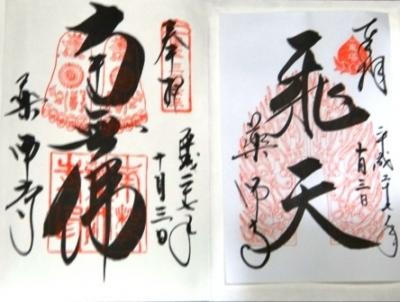 奉拝
平成二十七年
十月三日
南無佛
薬師寺
奉拝
平成二十七年
十月三日
飛天
薬師寺